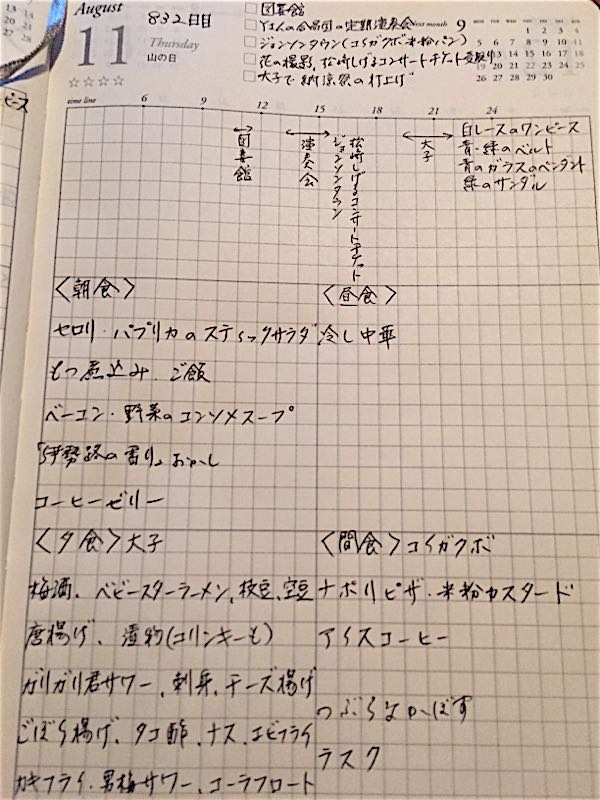 August
832日目
11
Thursday
山の日
☆☆☆☆
□図書館
□Yさんの合唱団の定期演奏会
□ジョンソンタウン(コイガクボ米粉パン)
□花の撮影、松崎しげるコンサートチケット受取り
□大子で納涼祭の打上げ
Next month 9
MON TUE WED THU FRI SAT SUN
1 2 3 4
5 6 7 8 9 10 11
12 13 14 15 16 17 18
19 20 21 22 23 24 25
26 27 28 29 30
time line 6 9 12 15 18 21 24
図書館
演奏会
ジョンソンタウン
松崎しげるコンサートチケット
大子
白レースのワンピース
青・緑のベルト
青のガラスのペンダント
緑のサンダル
〈朝食〉
セロリ・パプリカのスティックサラダ
もつ煮込み、ご飯
ベーコン・野菜のコンソメスープ
「伊勢路の香り」おかし
コーヒーゼリー
〈昼食〉
冷し中華
〈夕食〉大子
梅酒、ベビースターラーメン、枝豆、空豆
唐揚げ、漬物(コリンキーも)
ガリガリ君サワー、刺身、チーズ揚げ
ごぼう揚げ、タコ酢、ナス、エビフライ
カキフライ、男梅サワー、コーラフロート
〈間食〉コイガクボ
ナポリピザ・米粉カスタード
アイスコーヒー
つぶらなかぼす
ラスク
ピース